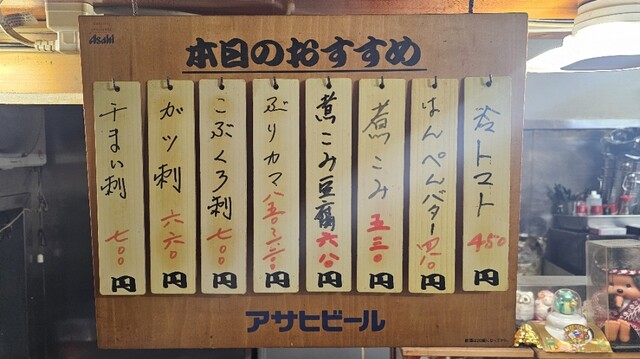 Asahi
本日のおすすめ
冷トマト 450円
はんぺんバター 四一〇円
煮こみ 五三〇円
煮こみ豆腐 六八〇円
ぶりカマ 八五〇円
こぶくろ刺 七〇〇円
ガツ刺 六六〇円
干まい刺 七〇〇円
アサヒビール